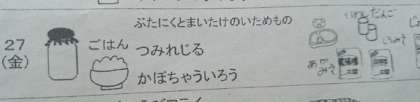 ぶたにくとまいたけのいためもの
27
(金)
ごはん
つみれじる
かぼちゃういろう
だんご
あか
みそ